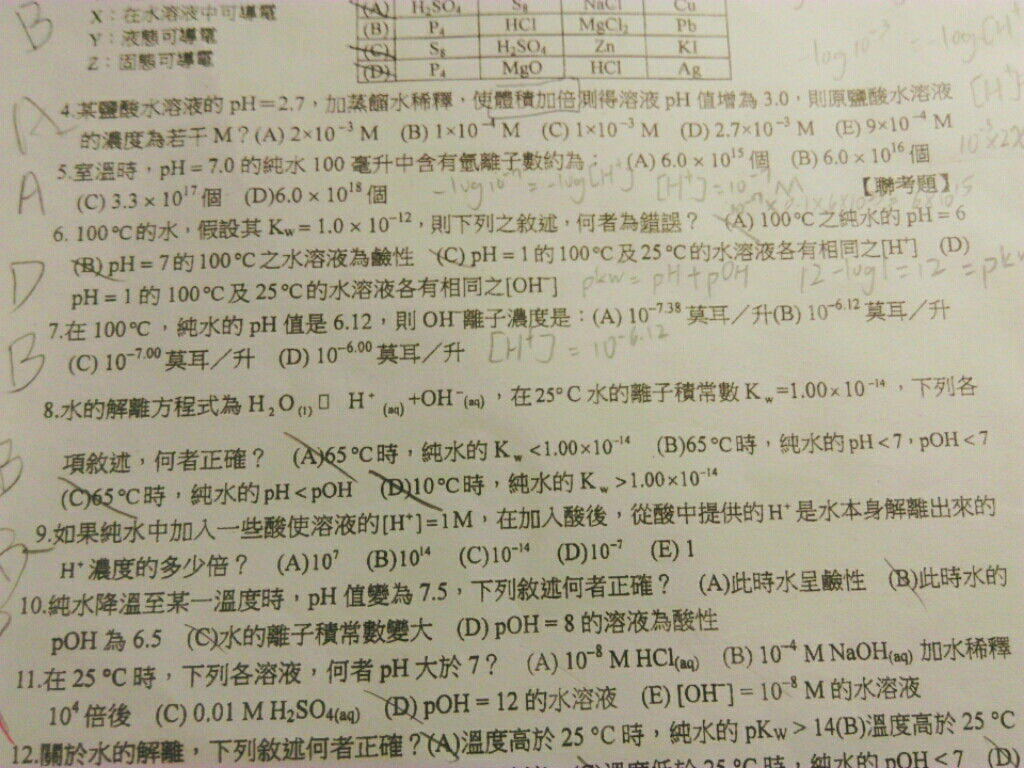 B
X：在水溶液中可導電
Y：液態可導電
Z：固態可導電
(A) H₂SO₄ S₈ NaCl Cu
(B) P₄ HCl MgCl₂ Pb
(C) S₈ H₂SO₄ Zn KI
(D) P₄ MgO HCl Ag
-log10⁻³ = -log[H⁺
[H⁺]
A
4.某鹽酸水溶液的 pH＝2.7，加蒸餾水稀釋，使體積加倍測得溶液 pH 值增為 3.0，則原鹽酸水溶液
的濃度為若干 M？(A) 2×10⁻³ M (B) 1×10⁻⁴ M (C) 1×10⁻³ M (D) 2.7×10⁻³ M (E) 9×10⁻⁴ M
10⁻³×2
A
5.室溫時，pH = 7.0 的純水 100 毫升中含有氫離子數約為： (A) 6.0 × 10¹⁵ 個 (B) 6.0 × 10¹⁶ 個
(C) 3.3 × 10¹⁷ 個 (D)6.0 × 10¹⁸ 個 【聯考題】
-log10⁻⁷ = -log[H⁺] [H⁺] = 10⁻⁷ M
6. 100℃的水，假設其 Kw = 1.0 × 10⁻¹²，則下列之敘述，何者為錯誤？ (A) 100℃之純水的 pH = 6
(B) pH = 7 的 100℃之水溶液為鹼性 (C) pH = 1 的 100℃及 25℃的水溶液各有相同之[H⁺] (D)
D
pH = 1 的 100℃及 25℃的水溶液各有相同之[OH⁻]
pkw = pH + pOH 12 - log1 = 12 = pkw
7.在 100℃，純水的 pH 值是 6.12，則 OH⁻離子濃度是：(A) 10⁻⁷·³⁸ 莫耳／升(B) 10⁻⁶·¹² 莫耳／升
B
(C) 10⁻⁷·⁰⁰ 莫耳／升 (D) 10⁻⁶·⁰⁰ 莫耳／升
[H⁺] = 10⁻⁶·¹²
8.水的解離方程式為 H₂O₍ₗ₎ □ H⁺(aq)+OH⁻(aq)，在25°C 水的離子積常數 Kw=1.00×10⁻¹⁴，下列各
B
項敘述，何者正確？ (A)65℃時，純水的 Kw<1.00×10⁻¹⁴ (B)65℃時，純水的 pH<7，pOH<7
(C)65℃時，純水的 pH<pOH (D)10℃時，純水的 Kw>1.00×10⁻¹⁴
9.如果純水中加入一些酸使溶液的[H⁺]=1M，在加入酸後，從酸中提供的 H⁺ 是水本身解離出來的
H⁺ 濃度的多少倍？ (A)10⁷ (B)10¹⁴ (C)10⁻¹⁴ (D)10⁻⁷ (E) 1
10.純水降溫至某一溫度時，pH 值變為 7.5，下列敘述何者正確？ (A)此時水呈鹼性 (B)此時水的
pOH 為 6.5 (C)水的離子積常數變大 (D) pOH = 8 的溶液為酸性
11.在 25 ℃ 時，下列各溶液，何者 pH 大於 7？ (A) 10⁻⁸ M HCl(aq) (B) 10⁻⁴ M NaOH(aq) 加水稀釋
10⁴ 倍後 (C) 0.01 M H₂SO₄(aq) (D) pOH = 12 的水溶液 (E) [OH⁻] = 10⁻⁸ M 的水溶液
12.關於水的解離，下列敘述何者正確？(A)溫度高於 25 ℃ 時，純水的 pKw > 14(B)溫度高於 25 ℃
溫度低於 25 ℃ 時，純水的 pOH < 7 (D)